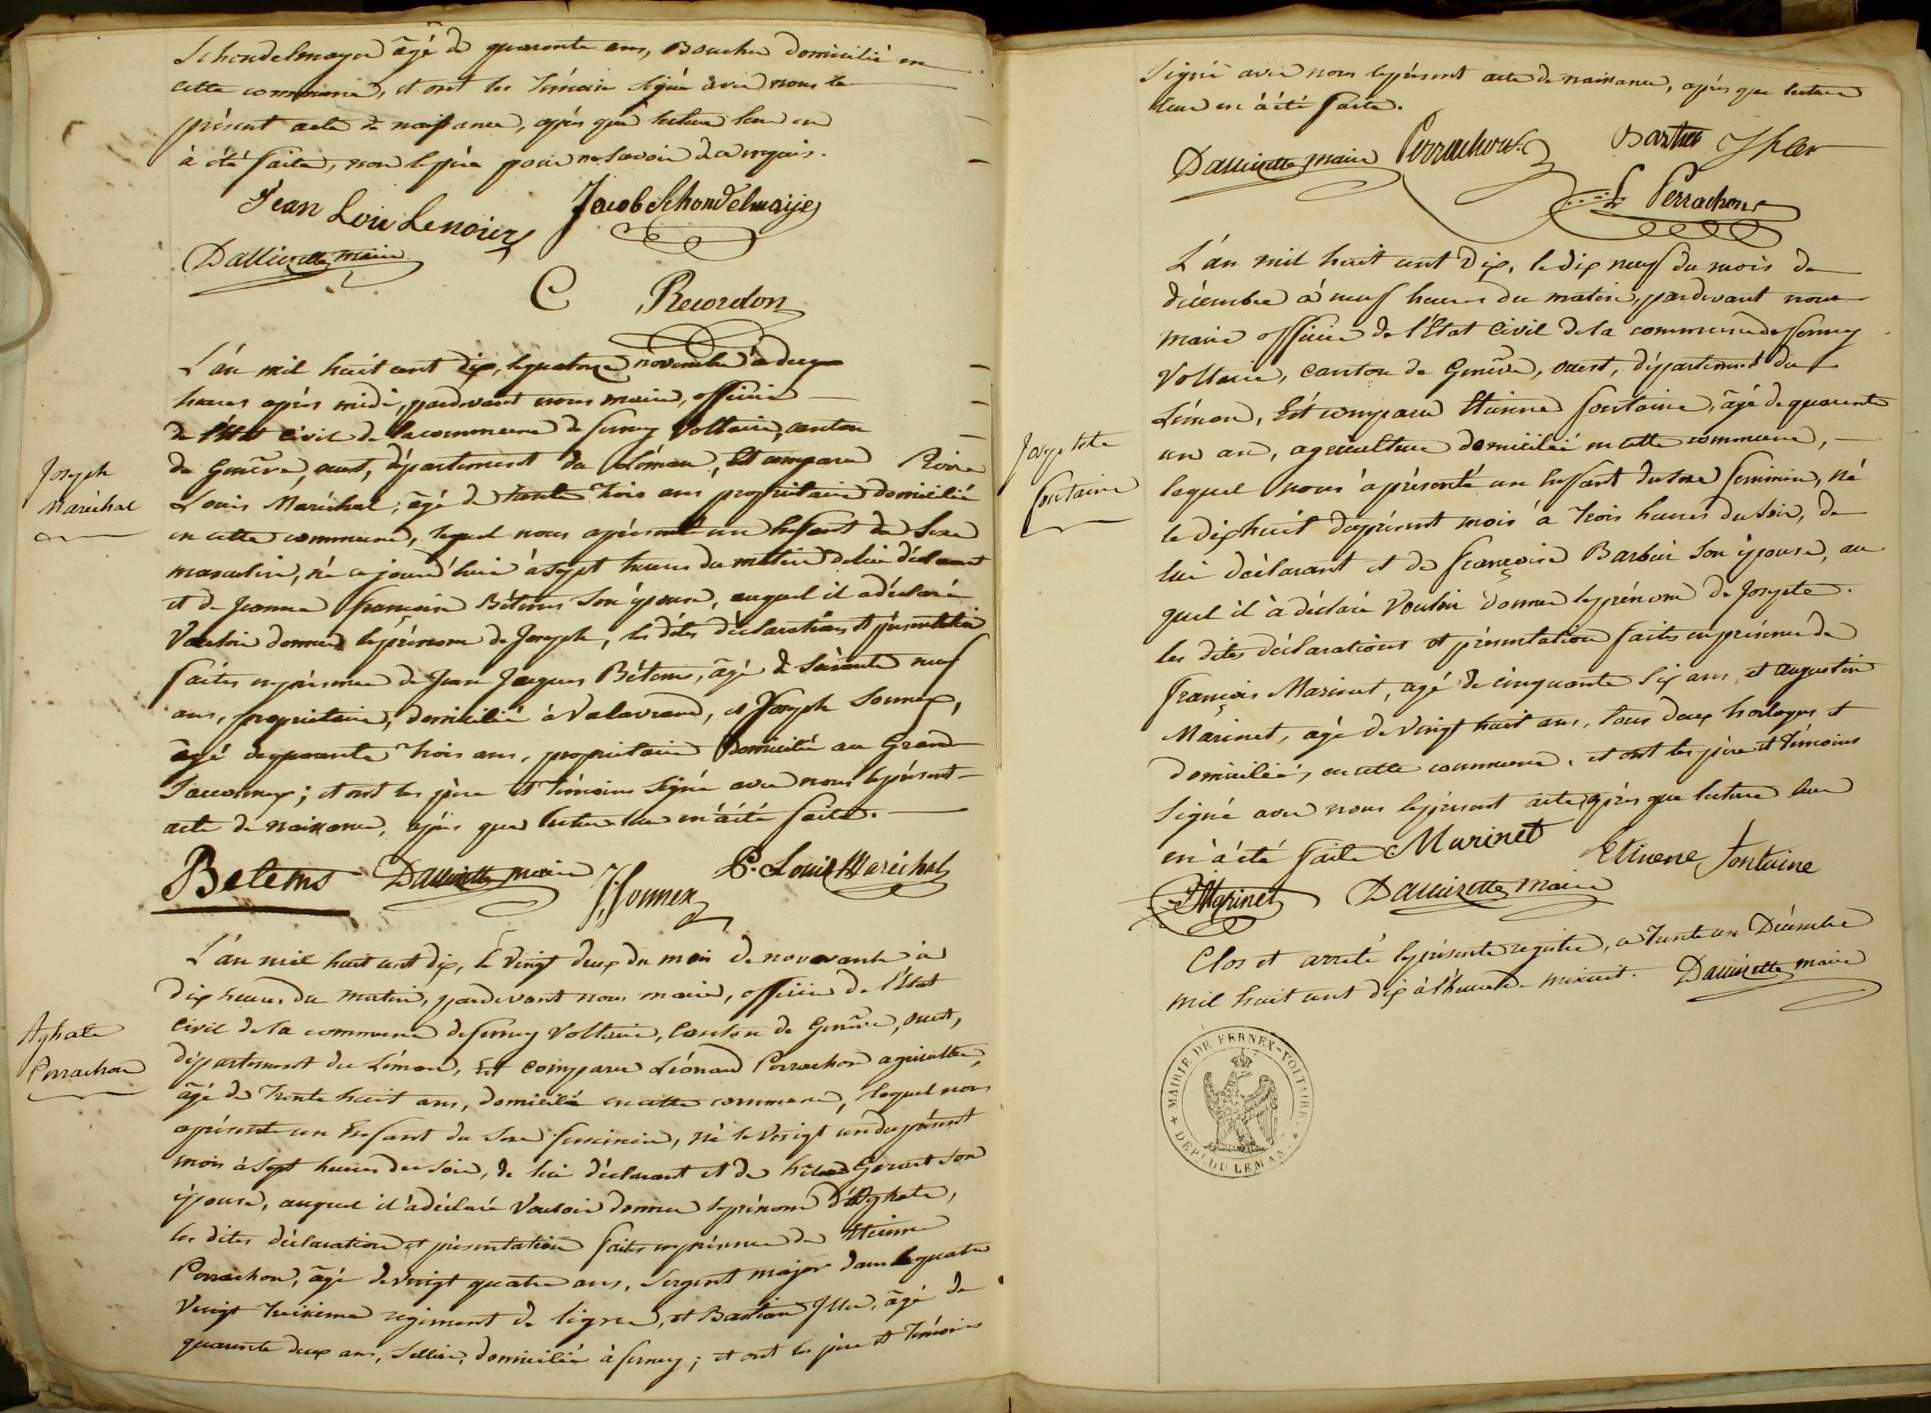 Schondelmayer âgé de quarante ans, Boucher domicilié en
cette commune, et ont les témoin signé avec nous le
présent acte de naissance, après que lecture leur en
à été faite, non le père pour ne savoir
Jean Loui Lenoir
Jacob Schondelmaije
Dallizette maire
C Recordon
L'án mil huit cent dix, le quatorze novembre à deux
heures après midi, pardevant nous maire, officier
de l'état civil de la commune de ferney Voltaire, canton
de Genève, ouest, département du Léman, Est comparu Pierre
Louis Maréchal, âgé de trente trois ans propriétaire domicilié
en cette commune, lequel nous a présenté un Enfant du Sexe
masculin, né ce jourd'huis à sept heures du matin de lui déclarant
et de Jeanne françoise Bétems son épouse, auquel il a déclaré
Vouloir donner le prénom de Joseph, les dites déclarations et présentation
faites en présence de Jean Jacques Bétems, âgé de soixante neuf
ans, propriétaire, domicilié à Valavrand, et Joseph Sonnex,
âgé de quarante trois ans, propriétaire domicilié au Grand
Sacconnex; et ont les père et témoins signé avec nous le présent
acte de naissance, après que lecture leur en à été faite.
Joseph
Maréchal
Betems
Dallizette maire
J. Sonnex
P. Louis Maréchal
L'án mil huit cent dix, le vingt deux du mois de novembre à
dix heures du matin, pardevant nous maire, officier de l'état
civil de la commune de ferney Voltaire, Canton de Genève, ouest,
département du Léman, Est comparu Léonard Perrachon agriculteur,
âgé de trente huit ans, domicilié en cette commune, lequel nous
a présenté un Enfant du sexe feminin, né le vingt un du présent
mois à sept heures du soir, de lui déclarant et de son
épouse, auquel il à déclaré Vouloir donner le prénom d'Aghate,
les dites déclaration et présentation faites en présence de Etienne
Perrachon, âgé de vingt quatre ans, sergent major dans le quatre
Vingt treizième régiment de ligne, et Bastian Jller, âgé de
quarante deux ans, sellier, domicilié à ferney; et ont les père et témoins
Aghate
Perrachon
Signé avec nous le présent acte de naissance, après que lecture
leur en à été faite.
Dallizette maire
Perrachon
Bastian Jhler
L Perrachon
L'án mil huit cent dix, le dix neuf du mois de
décembre à neuf heures du matin, pardevant nous
maire officier de l'État Civil de la commune de ferney
Voltaire, canton de Genève, ouest, département du
Léman, Est comparu Etienne fontaine, âgé de quarente
un an, agriculteur domicilié en cette commune,
lequel nous à présenté un Enfant du sexe feminin, né
le dix huit du présent mois à trois heures du soir, de
lui déclarant et de françoise Barbier son épouse, au
quel il à déclaré Vouloir donner le prénom de Josepte.
les dites déclarations et présentation faites en présence de
françois Marinet, agé de cinquante six ans, et augustin
Marinet, agé de vingt huit ans, tous deux horlogers et
domiciliés en cette commune, et ont les père et témoins
signé avec nous le présent acte après que lecture leur
en à été faite
Josepte
fontaine
Marinet
Etienne fontaine
Marinet
Dallizette maire
Clos et arreté le présente registre, ce trente un Décembre
mil huit cent dix à l'heure de minuit. Dallizette maire
MAIRIE DE FERNEX-VOLTAIRE
DÉPT DU LEMAN